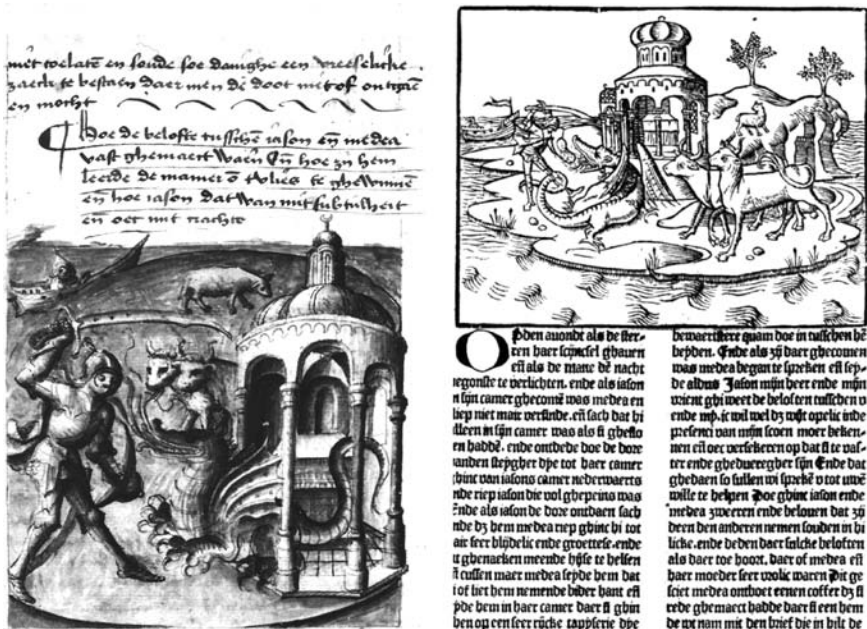 niet toelatē en soude soe danighe een vreeselicke
zaeck te bestaen daer men dē doot niet of ontgaē
en mocht
Hoe de belofte tusschē iason eñ medea
vast ghemaect waeñ Eñ hoe zij hem
leerde de manier ō tvlies te ghewinnē
eñ hoe iason dat wan mit subtilheit
eñ oec mit crachte
OPden auondt als de ster-
ren haer scijnsel ghauen
eñ als die mane dē nacht
begonste te verlichten. ende als iason
n sijn camer ghecomē was medea en
liep niet mair versinde. eñ sach dat hi
alleen in sijn camer was als si gheslo
en haddē. ende ontdede doe de dore
vanden steygher dye tot haer camer
ghinc van iasons camer nederwaerts
nde riep iason die vol ghepeins was
Ende als iason de dore ontdaen sach
nde dz hem medea riep ghinc hi tot
air seer blijdelic ende groettese. ende
it ghenaeken meende hijse te helsen
ñ cussen maer medea seyde hem dat
i of liet hem nemende bider hant eñ
yde hem in haer camer daer si ghin
hen op een seer rijcke tappijserie dye
bewaerstere quam doe in tusschen hē
beyden. Ende als zij daer ghecomen
was medea began te spreken eñ sey-
de aldus Jason mijn heer ende mijn
vrient ghi weet de beloften tusschen v
ende mij. ic wil wel dz wijt opelic inde
presenci van mijn scoen moer beken-
nen eñ oec versekeren op dat si te vas-
ter ende ghedueregher sijn Ende dat
ghedaen so sullen wi sprekē v tot uwē
wille te helpen Doe ghinc iason ende
medea zweeren ende belouen dat zij
deen den anderen nemen souden in hi
licke. ende deden daer sulcke beloften
als daer toe hoort. daer of medea eñ
haer moeder seer vrolic waren Dit ge
sciet medea ontboet eenen coffer dz si
rede ghemaect hadde daer si een hem
de wt nam mit den brief die in hilt de